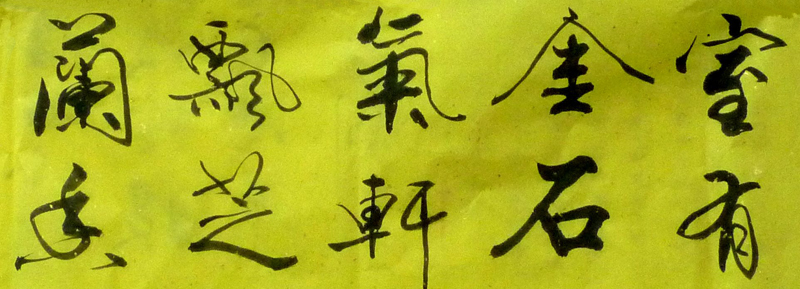 室有
金石
氣軒
飄芝
蘭香